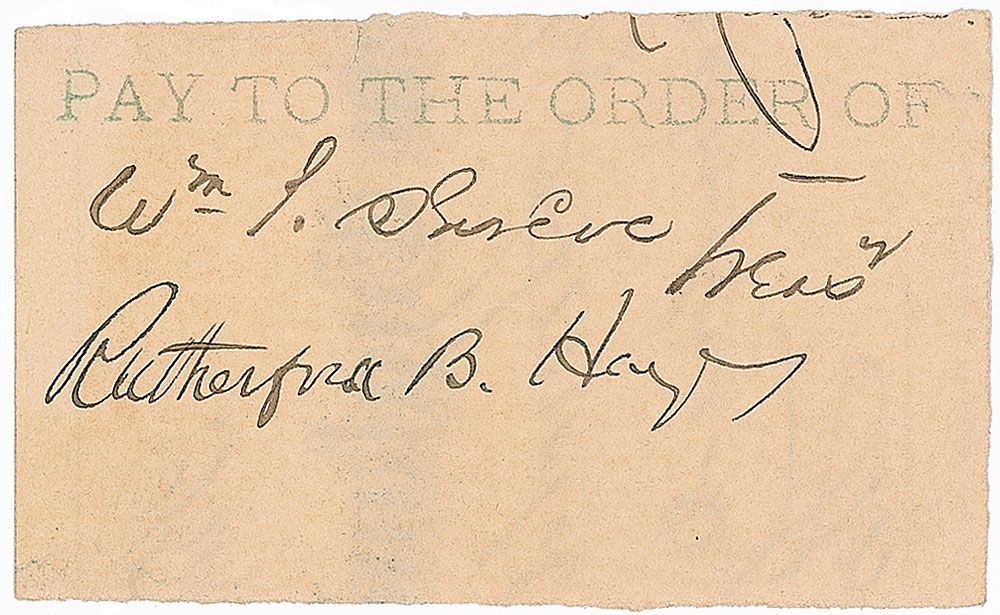 PAY TO THE ORDER OF
Wm S. Shreve Treasr
Rutherford B. Hayes